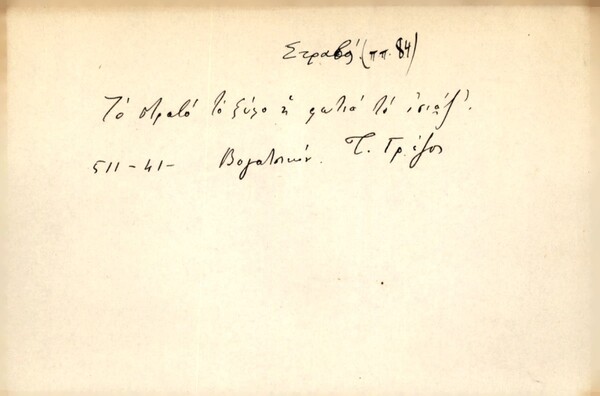 Στραβός (ππ. 84)
Τό στραβό τό ξύλο ἡ φωτιά τό σιάζ'.
511-41- Βογατσικόν. Τ. Γρέζος